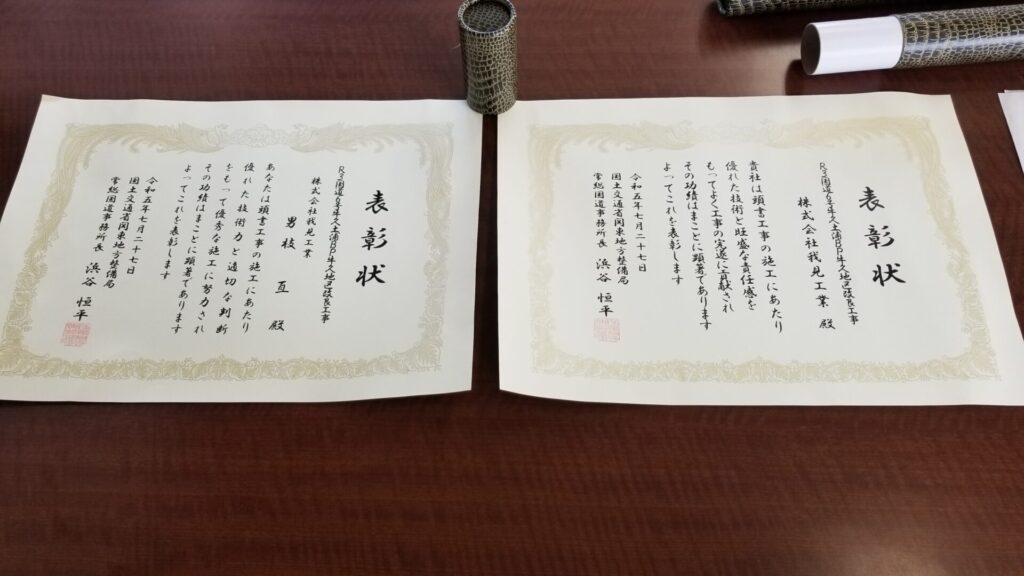 表彰状
R3国道6号牛久土浦BP牛久地区改良工事
株式会社我見工業 殿
貴社は頭書工事の施工にあたり
優れた技術と旺盛な責任感を
もってよく工事の完遂に貢献され
その功績はまことに顕著であります
よってこれを表彰します
令和五年七月二十七日
国土交通省関東地方整備局
常総国道事務所長 浜谷 恒平
表彰状
R3国道6号牛久土浦BP牛久地区改良工事
株式会社我見工業
男枝 亙 殿
あなたは頭書工事の施工にあたり
優れた技術力と適切な判断
をもって優秀な施工に努力され
その功績はまことに顕著であります
よってこれを表彰します
令和五年七月二十七日
国土交通省関東地方整備局
常総国道事務所長 浜谷 恒平